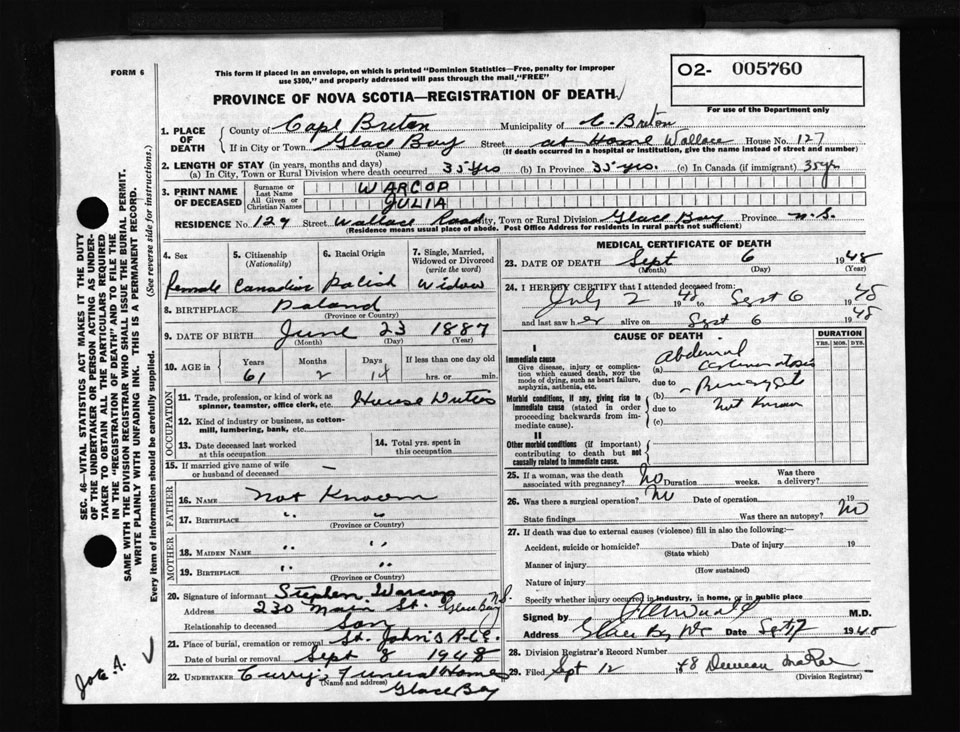 FORM 6
This form if placed in an envelope, on which is printed "Dominion Statistics—Free, penalty for improper
use $300," and properly addressed will pass through the mail, "FREE"
O2- 005760
For use of the Department only
PROVINCE OF NOVA SCOTIA—REGISTRATION OF DEATH
1. PLACE OF DEATH
County of Cape Breton Municipality of C. Breton
If in City or Town Glace Bay Street at Home Wallace House No. 127
(Name) (If death occurred in a hospital or institution, give the name instead of street and number)
2. LENGTH OF STAY (in years, months and days)
(a) In City, Town or Rural Division where death occurred 35 yrs (b) In Province 35 yrs. (c) In Canada (if immigrant) 35 yr
3. PRINT NAME OF DECEASED
Surname or Last Name WARCOP
All Given or Christian Names JULIA
RESIDENCE No. 127 Street Wallace Road City, Town or Rural Division Glace Bay Province N.S.
(Residence means usual place of abode. Post Office Address for residents in rural parts not sufficient)
4. Sex Female
5. Citizenship (Nationality) Canadian
6. Racial Origin Polish
7. Single, Married, Widowed or Divorced (write the word) Widow
8. BIRTHPLACE Poland
(Province or Country)
9. DATE OF BIRTH June 23 1887
(Month) (Day) (Year)
10. AGE in Years 61 Months 2 Days 14 If less than one day old
hrs. or min.
OCCUPATION
11. Trade, profession, or kind of work as spinner, teamster, office clerk, etc. House Duties
12. Kind of industry or business, as cotton-mill, lumbering, bank, etc.
13. Date deceased last worked at this occupation
14. Total yrs. spent in this occupation
15. If married give name of wife or husband of deceased —
FATHER
16. Name Not Known
17. Birthplace " "
(Province or Country)
MOTHER
18. Maiden Name " "
19. Birthplace " "
(Province or Country)
20. Signature of informant Stephen Warcop
Address 230 Main St. Glace Bay N.S.
Relationship to deceased Son
21. Place of burial, cremation or removal St. John's
Date of burial or removal Sept 8 1948
22. UNDERTAKER Curry's Funeral Home
(Name and address)
Glace Bay
MEDICAL CERTIFICATE OF DEATH
23. DATE OF DEATH Sept 6 1948
(Month) (Day) (Year)
24. I HEREBY CERTIFY that I attended deceased from:
July 2 1948 to Sept 6 1948
and last saw her alive on Sept 6 1948
CAUSE OF DEATH
DURATION
YRS. MOS. DYS.
I
Immediate cause
Give disease, injury or complication which caused death, NOT the mode of dying, such as heart failure, asphyxia, asthenia, etc.
(a) Abdominal Carcinomatosis
due to
Morbid conditions, if any, giving rise to immediate cause (stated in order proceeding backwards from immediate cause).
(b) Primary site
due to Not Known
(c)
II
Other morbid conditions (if important) contributing to death but not causally related to immediate cause.
25. If a woman, was the death associated with pregnancy? No Duration weeks. Was there a delivery?
26. Was there a surgical operation? No Date of operation 19
State findings Was there an autopsy? No
27. If death was due to external causes (violence) fill in also the following:—
Accident, suicide or homicide? Date of injury 19
(State which)
Manner of injury
(How sustained)
Nature of injury
Specify whether injury occurred in industry, in home, or in public place
Signed by M.D.
Address Glace Bay NS Date Sept 7 1948
28. Division Registrar's Record Number
29. Filed Sept 12 48 Duncan MacRae
(Division Registrar)
SEC. 46—VITAL STATISTICS ACT MAKES IT THE DUTY
OF THE UNDERTAKER OR PERSON ACTING AS UNDER-
TAKER TO OBTAIN ALL THE PARTICULARS REQUIRED
IN THE "REGISTRATION OF DEATH" AND TO FILE THE
SAME WITH THE DIVISION REGISTRAR WHO SHALL ISSUE THE BURIAL PERMIT.
WRITE PLAINLY WITH UNFADING INK. THIS IS A PERMANENT RECORD.
Every item of information should be carefully supplied. (See reverse side for instructions.)